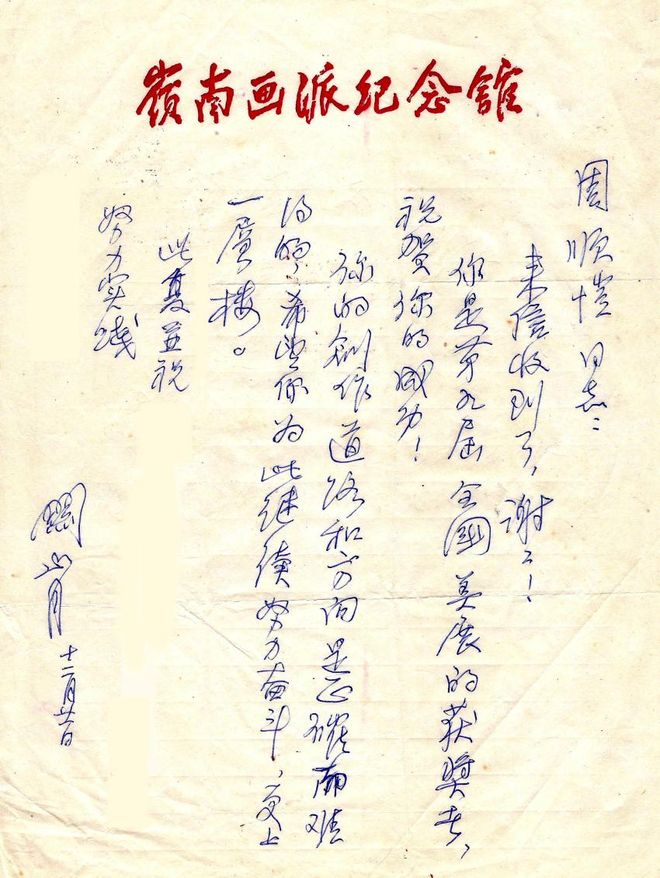 嶺南画派纪念館
周顺愷同志：
来信收到了，谢々！
你是第九届全国美展的获奖者，
祝贺你的成功！
你的創作道路和方向是正確而难
得的，希望你为此继续努力奋斗，更上
一层楼。
此复並祝
努力实践
關山月
十二月廿日